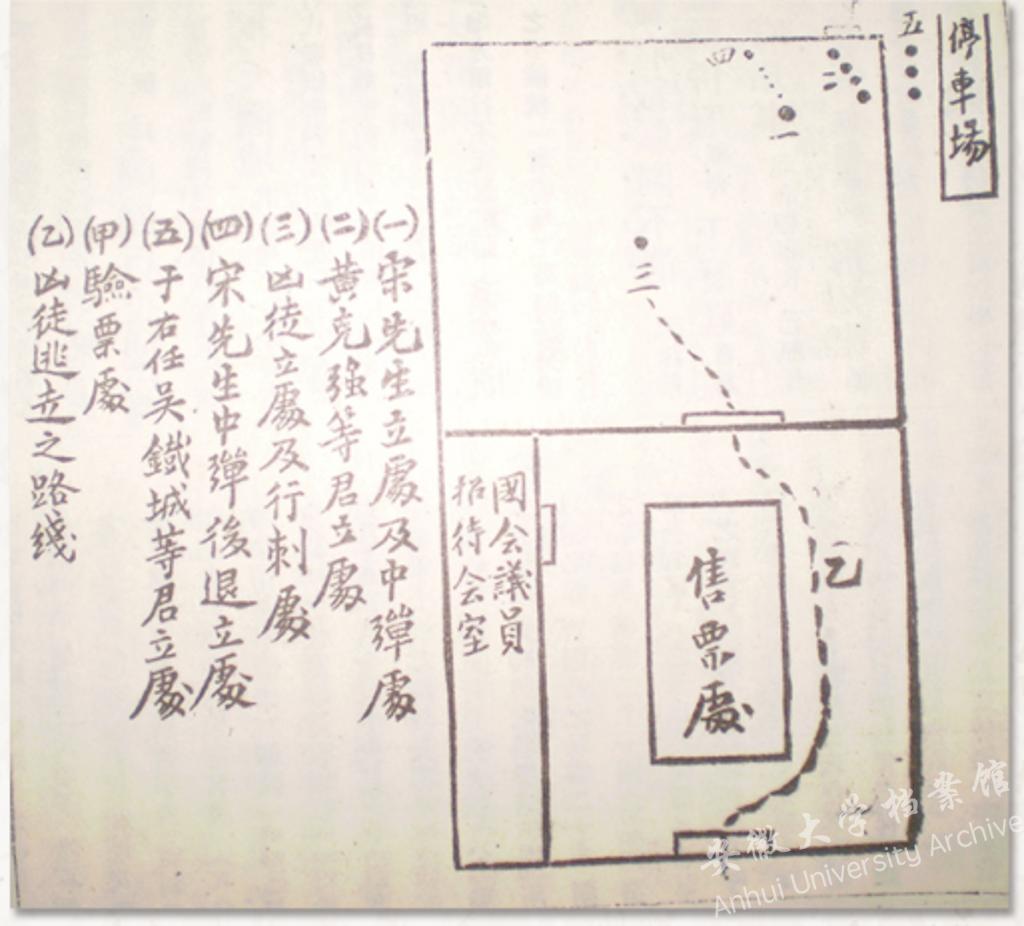 停車場
五
二
一
四
三
乙
售票處
國会議員
招待会室
(一)宋先生立處及中彈處
(二)黃克强等君立處
(三)凶徒立處及行刺處
(四)宋先生中彈後退立處
(五)于右任吴鐵城等君立處
(甲)驗票處
(乙)凶徒逃走之路綫
安徽大学档案馆
Anhui University Archive